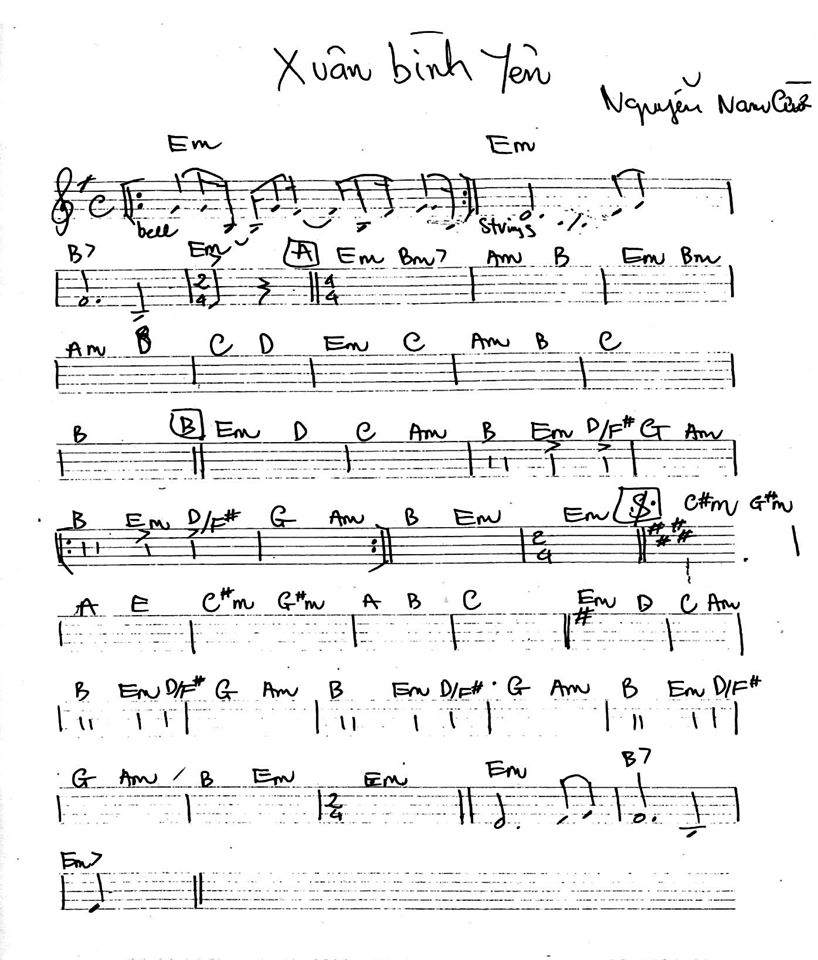 Xuân bình Yên
Nguyễn Nam
Em Em
C
bell Strings
B7 Em A Em Bm7 Am B Em Bm
2/4 4/4
Am B C D Em C Am B C
B B Em D C Am B Em D/F# G Am
B Em D/F# G Am B Em Em C#m G#m
2/4
A E C#m G#m A B C Em D C Am
B Em D/F# G Am B Em D/F# G Am B Em D/F#
G Am B Em Em Em B7
2/4
Em7